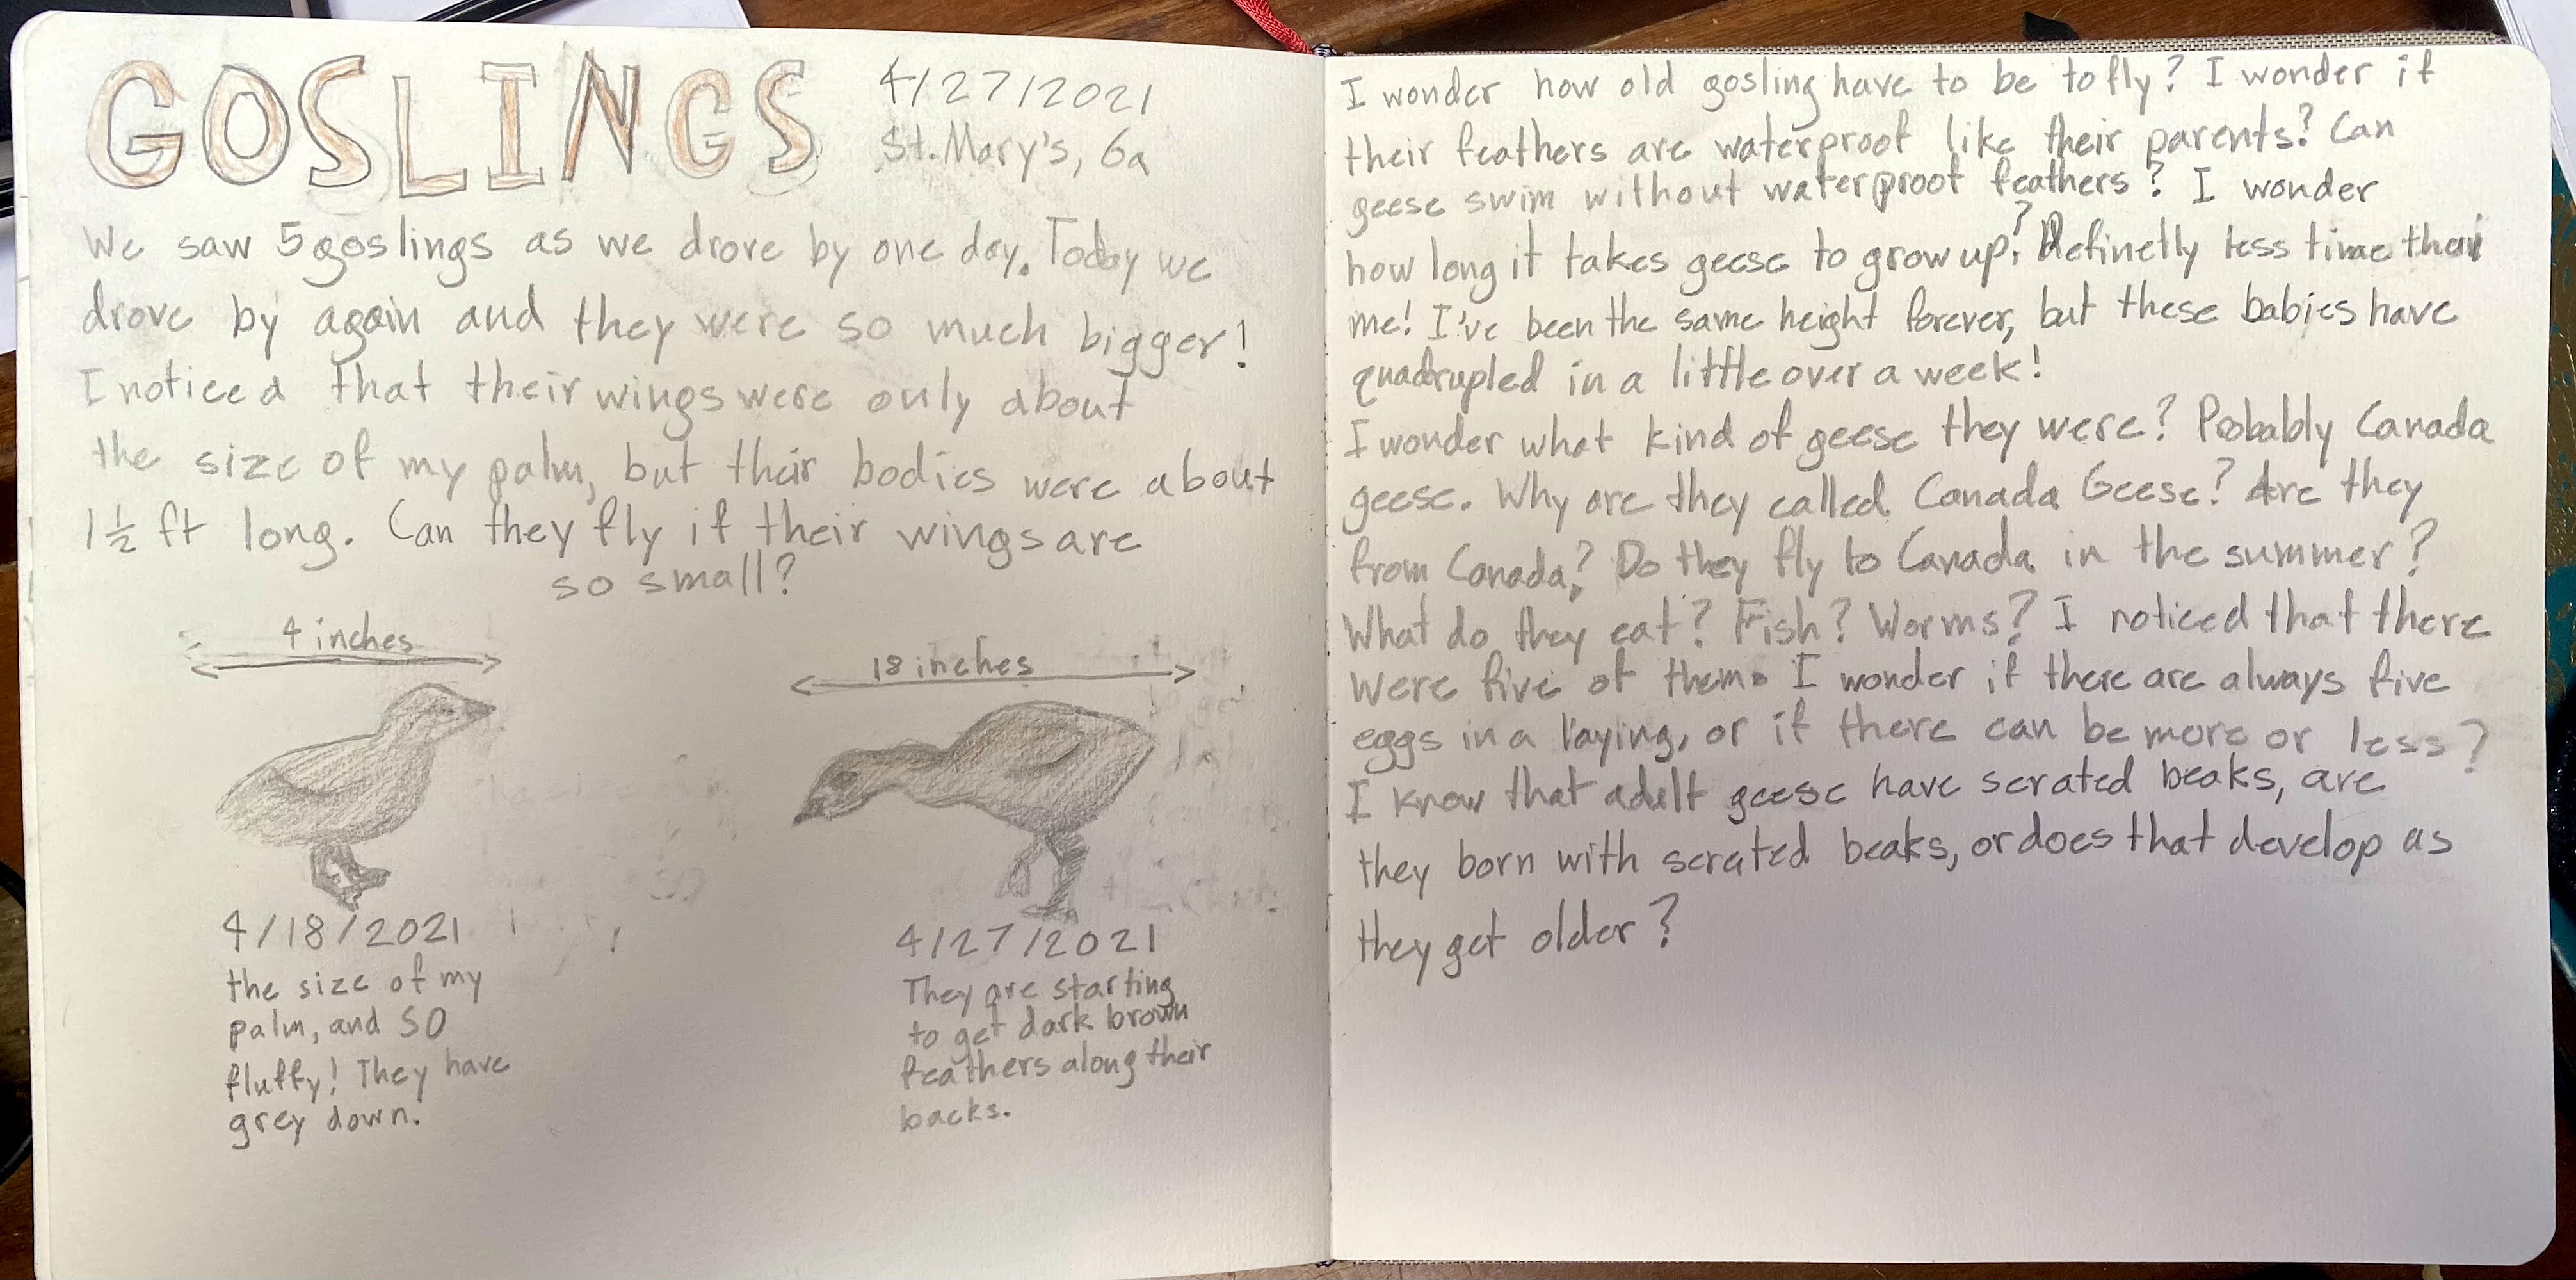 GOSLINGS
4/27/2021
St. Mary's, 6a
We saw 5 goslings as we drove by one day. Today we
drove by again and they were so much bigger!
I noticed that their wings were only about
the size of my palm, but their bodies were about
1 1/2 ft long. Can they fly if their wings are
so small?
4 inches
4/18/2021
the size of my
palm, and SO
fluffy! They have
grey down.
18 inches
4/27/2021
They are starting
to get dark brown
feathers along their
backs.
I wonder how old gosling have to be to fly? I wonder if
their feathers are waterproof like their parents? Can
geese swim without waterproof feathers? I wonder
how long it takes geese to grow up? Definetly less time than
me! I've been the same height forever, but these babies have
quadrupled in a little over a week!
I wonder what kind of geese they were? Probably Canada
geese. Why are they called Canada Geese? Are they
from Canada? Do they fly to Canada in the summer?
What do they eat? Fish? Worms? I noticed that there
were five of them. I wonder if there are always five
eggs in a laying, or if there can be more or less?
I know that adult geese have serated beaks, are
they born with serated beaks, or does that develop as
they get older?